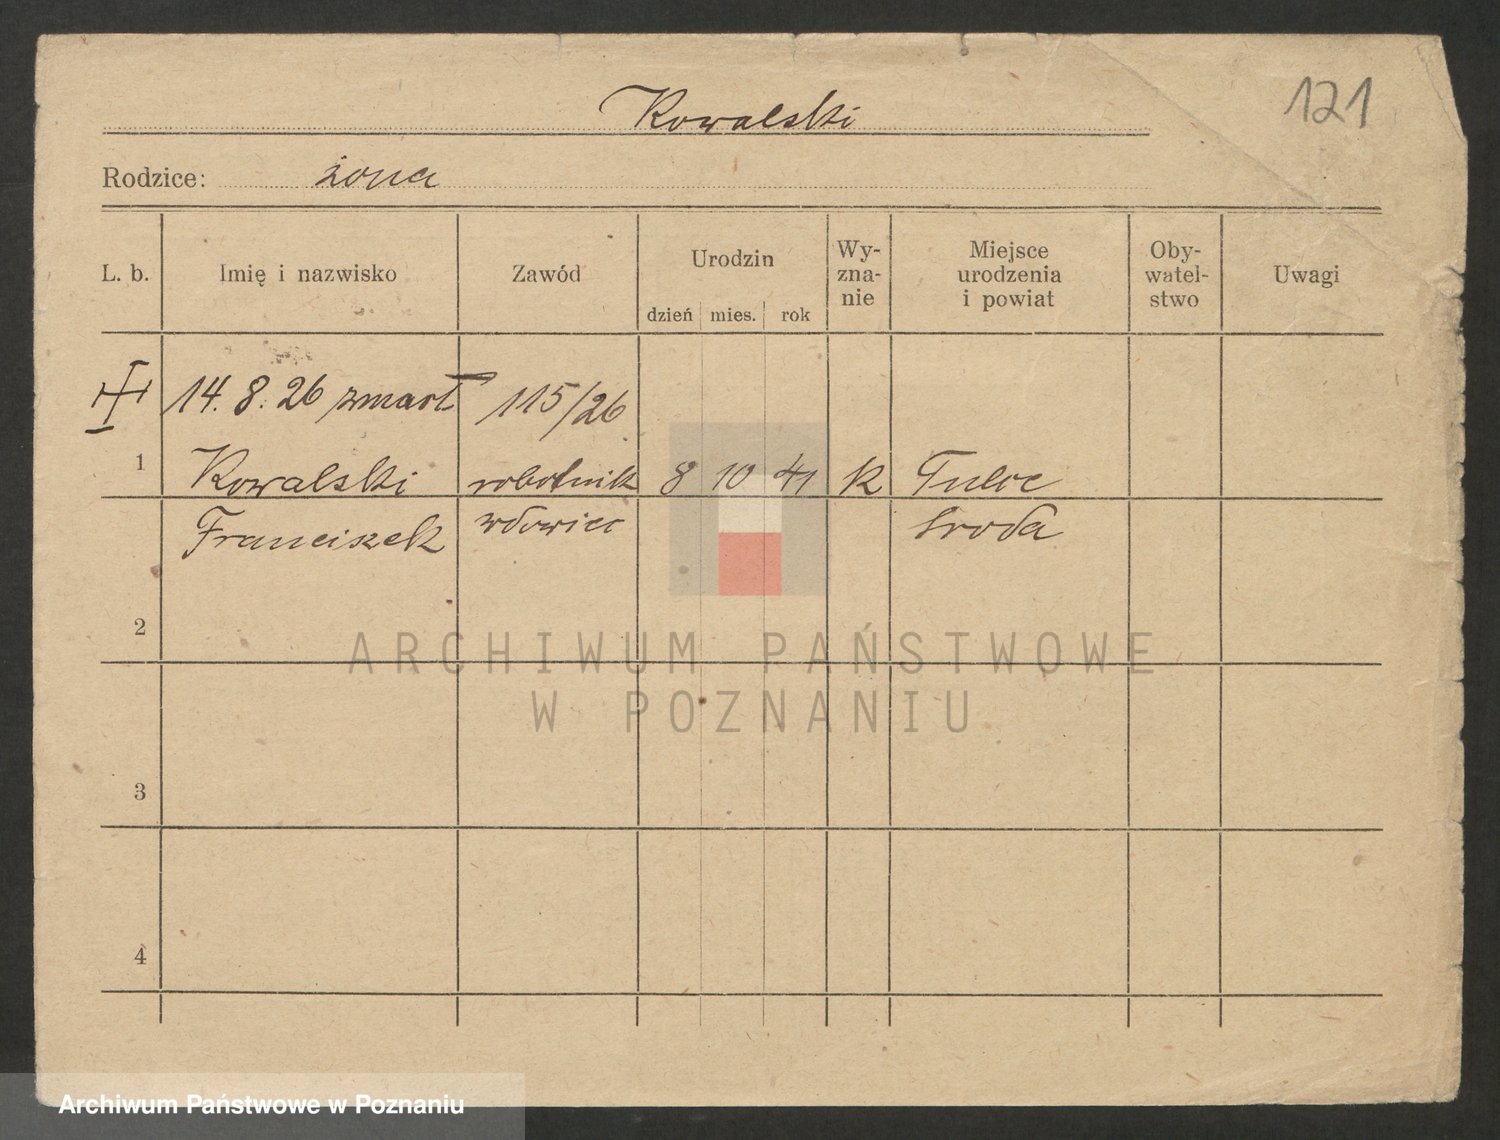 Kowalski
121
Rodzice: żona
L. b. Imię i nazwisko Zawód Urodzin Wy-zna-nie Miejsce urodzenia i powiat Oby-watel-stwo Uwagi
dzień mies. rok
14. 8. 26 zmarł 115/26
1 Kowalski robotnik 8 10 41 k Tulce
Franciszek wdowiec Sroda
2
ARCHIWUM PAŃSTWOWE
W POZNANIU
3
4
Archiwum Państwowe w Poznaniu